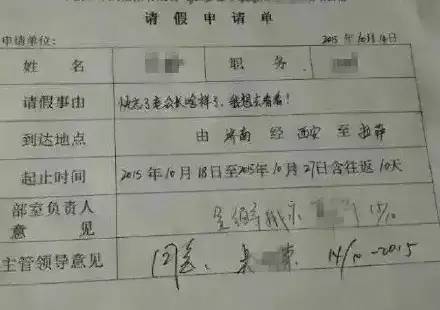 请假申请单
申请单位： 2015年10月14日
姓名 职务
请假事由 快忘了老公长啥样了，我想去看看！
到达地点 由 济南 经 西安 至 拉萨
起止时间 2015年10月18日至2015年10月27日含往返10天
部室负责人
意见 15/10
主管领导意见 同意、 14/10-2015